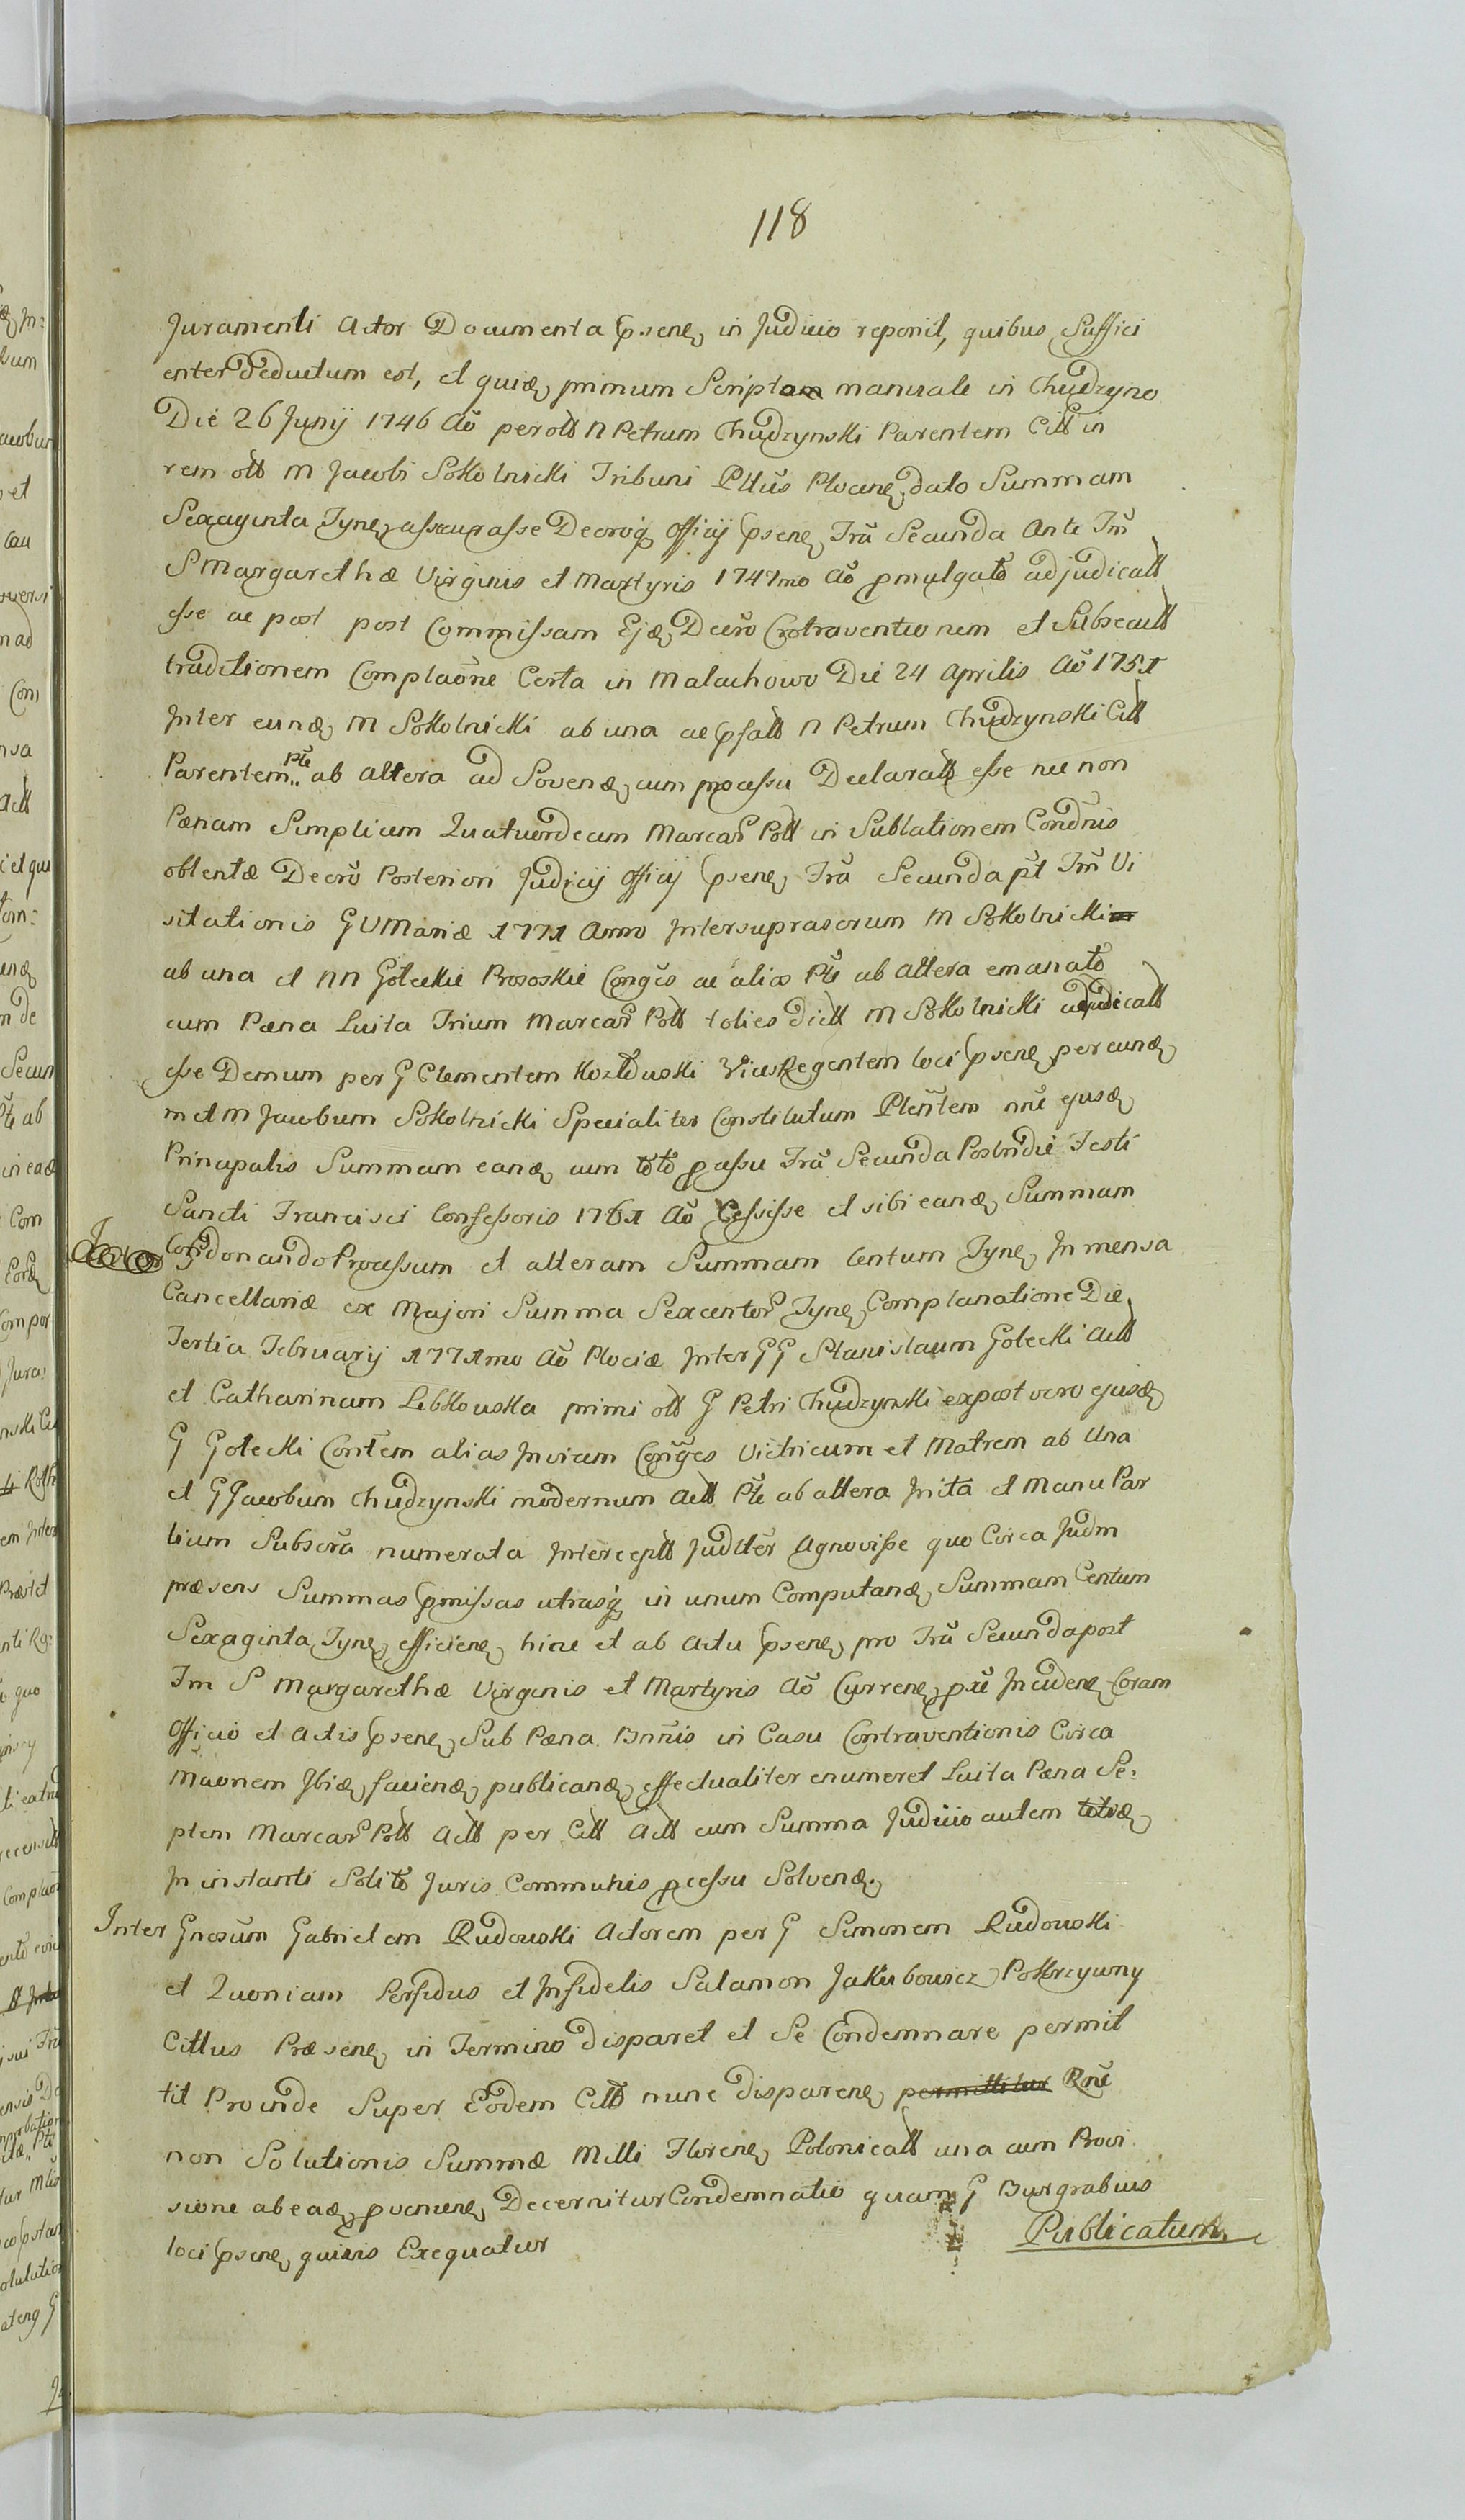 118
Juramenti Actor Documenta psene in Judicio reponit, quibus Suffici
enter Deductum est, et quia primum Scriptam manuale in Chudzyno
Die 26 Junij 1746 Aõ per olt N Petrum Chudzynski Parentem Citt in
rem olt M Jacobi Sokolnicki Tribuni Plltus Plocene, dato Summam
Sexaginta Tyne, assecurasse Decroq Officij psene, Fra Secunda Ante Fm
S Margarethæ Virginis et Martyris 1747mo Aõ pmulgato adjudicatt
esse ac post post Commissam Ejæ Decro Controventionem et Subsecutt
traditionem Complaõne Certa in Malachowo Die 24 Aprilis Aõ 1751
Inter eunæ M Sokolnicki ab una ac psatt N Petrum Chudzynski Citt
Parentem Pte ab Altera ad Sovenæ, cum processu Declaratt esse nec non
Pænam Simplicium Quatuordecim Marcar Poll in Sublationem Condnis
obtentæ Decro Posteriori Judicij Officij psene Fra Secunda pt Fm Vi
sitationis GVMariæ 1771 Anno Inter suprasorum M Sokolnicki
ab una et NN Goleckie Prososkie Congcs ac alios Pte ab Altera emanato
cum Pæna Luita Trium Marcar Poll toties dictt M Sokolnicki adjudicatt
esse Demum per G Clementem Kozłowski ViceRegentem loci psene per eunæ
met M Jacobum Sokolnicki Specialiter Constitutum Plentem nne ejusæ
Principalis Summam eanæ cum toto pcessu Fra Secunda Postridie Festi
Sancti Francisci Confessoris 1761 Aõ Cessisse et sibi eanæ Summam
Condonando Processum et alteram Summam Centum Tyne, In mensa
Cancellariæ ex Majori Summa Sexcentor Tyne Complanatione Die
Tertia Februarij 1771mo Aõ Plociæ Inter GG Stanislaum Golecki Actt
et Catharinam Lebkouska primi olt G Petri Chudzynski expost vero ejusæ
G Golecki Contem alias Invicem Congcs Victricum et Matrem ab Una
et GJacobum Chudzynski modernum Actt Pte ab altera Inita et Manu Par
tium Subscra numerata Interceptt Judltér Agnovisse quo Circa Judm
præsens Summas pmissas utrasq in unum Computanæ Summam Centum
Sexaginta Tyne, efficiene, hinc et ab Actu psene, pro Fra Secunda post
Fm S Margarethæ Virginis et Martyris Aõ Currene, pxe Incidene Coram
Officio et Actis psene, Sub Pæna Bnnis in Casu Contraventionis Circa
Maonem Ibiæ facienæ publicanæ, effectualiter enumeret Luita Pæna Se:
ptem Marcar Poll Actt per Citt Actt cum Summa Judicio autem totiæ
In instanti Solito Juris Communis pcessu Solvenæ.
Inter Gnosum Gabrielem Rudouski Actorem per G Simonem Rudouski
et Quoniam Perfidus et Infidelis Salamon Jakubowicz Pokrzywny
Cittus Præsene, in Termino disparet et Se Condemnare permit
tit Proinde Super Eodem Citto nunc disparene, permittitur Rone
non Solutionis Summæ Milli Florene, Polonicatt una cum Provi
sione ab eaæ, pveniene, Decernitur Condemnatio quam G Burgrabius
loci psene, quivis Exequatur
Publicatum.